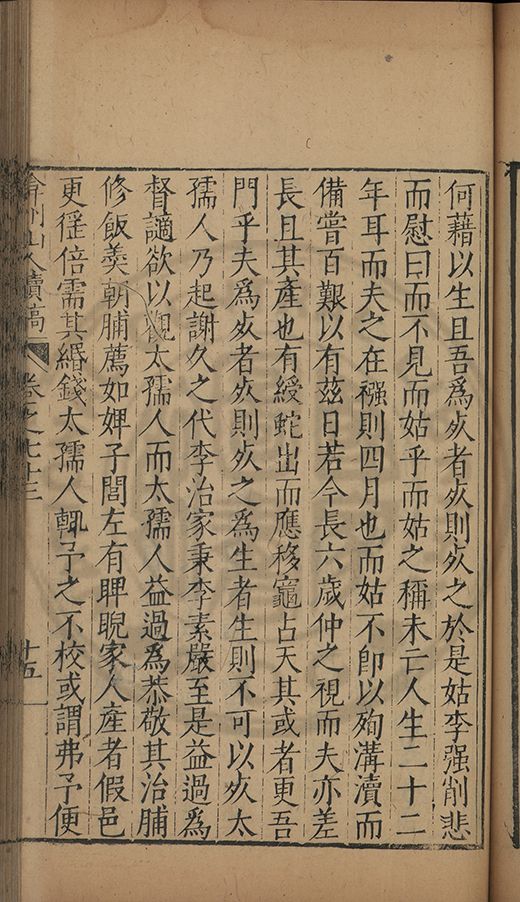 何藉以生且吾爲夊者夊則夊之於是姑李强削悲
而慰曰而不見而姑乎而姑之稱未亡人生二十二
年耳而夫之在襁則四月也而姑不卽以殉溝瀆而
備嘗百艱以有兹日若今長六歲仲之視而夫亦差
長且其產也有綬蛇出而應移竈占天其或者更吾
門乎夫爲夊者夊則夊之爲生者生則不可以夊太
孺人乃起謝久之代李治家秉李素嚴至是益過爲
督謫欲以觀太孺人而太孺人益過爲恭敬其治脯
修飯羮朝脯薦如婢子閭左有睥睨家人產者假邑
更徭倍需其緡錢太孺人輒予之不校或謂弗予便
弇州山人續稿 卷之七十三 十五